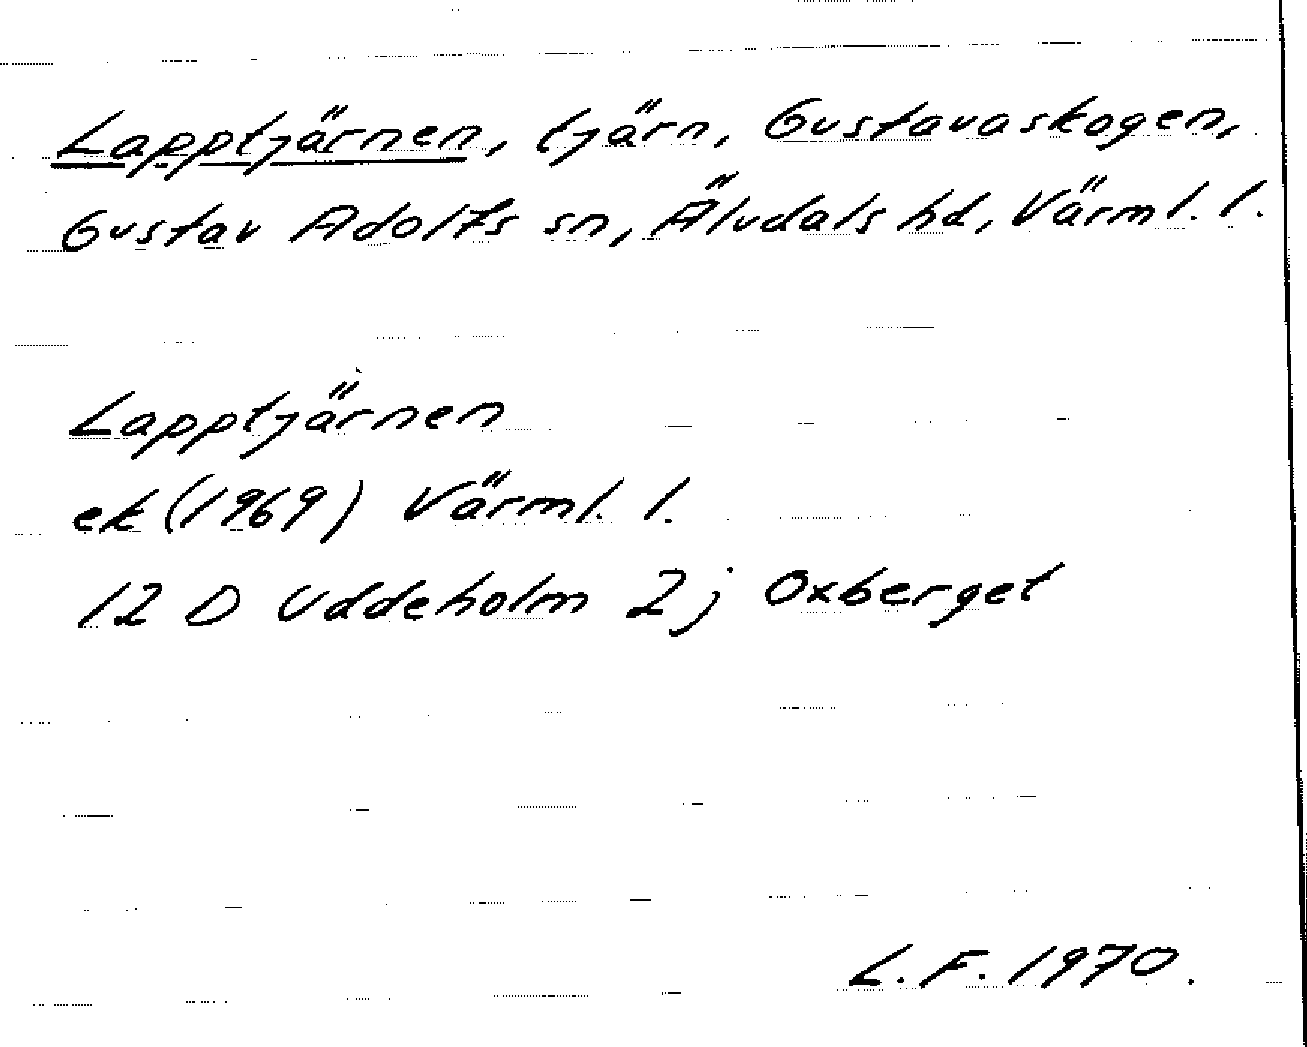 Lapptjärnen, tjärn, Gustavaskogen,
Gustav Adolfs sn, Älvdals hd, Värml. l.
Lapptjärnen
ek (1969) Värml. l.
12 D Uddeholm 2 j Oxberget
L.F. 1970.